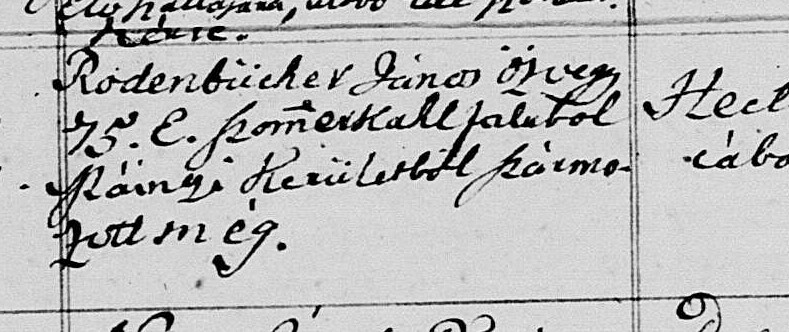 háze.
Rodenbücher János özvegy
75. E. Szom̅erkall faluból
Ráinzi Kerületből Szármo-
zott még.
Hect
cába